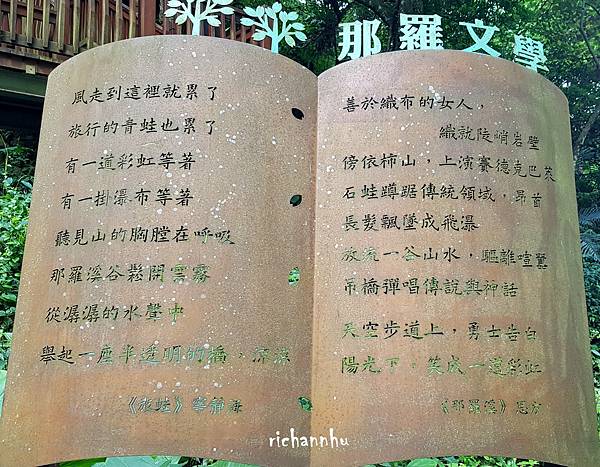 那羅文學
風走到這裡就累了
旅行的青蛙也累了
有一道彩虹等著
有一掛瀑布等著
聽見山的胸膛在呼吸
那羅溪谷鬆開雲霧
從潺潺的水聲中
舉起一座半透明的橋，淙淙
《旅蛙》
善於織布的女人，
織就陵峭岩壁
傍依柿山，上演賽德克巴萊
石蛙蹲踞傳統領域，昂首
長髮飄墜成飛瀑
放流一谷山水，驅離喧囂
吊橋彈唱傳說與神話
天空步道上，勇士告白
陽光下，笑成一道彩虹
《那羅溪》
richannhu